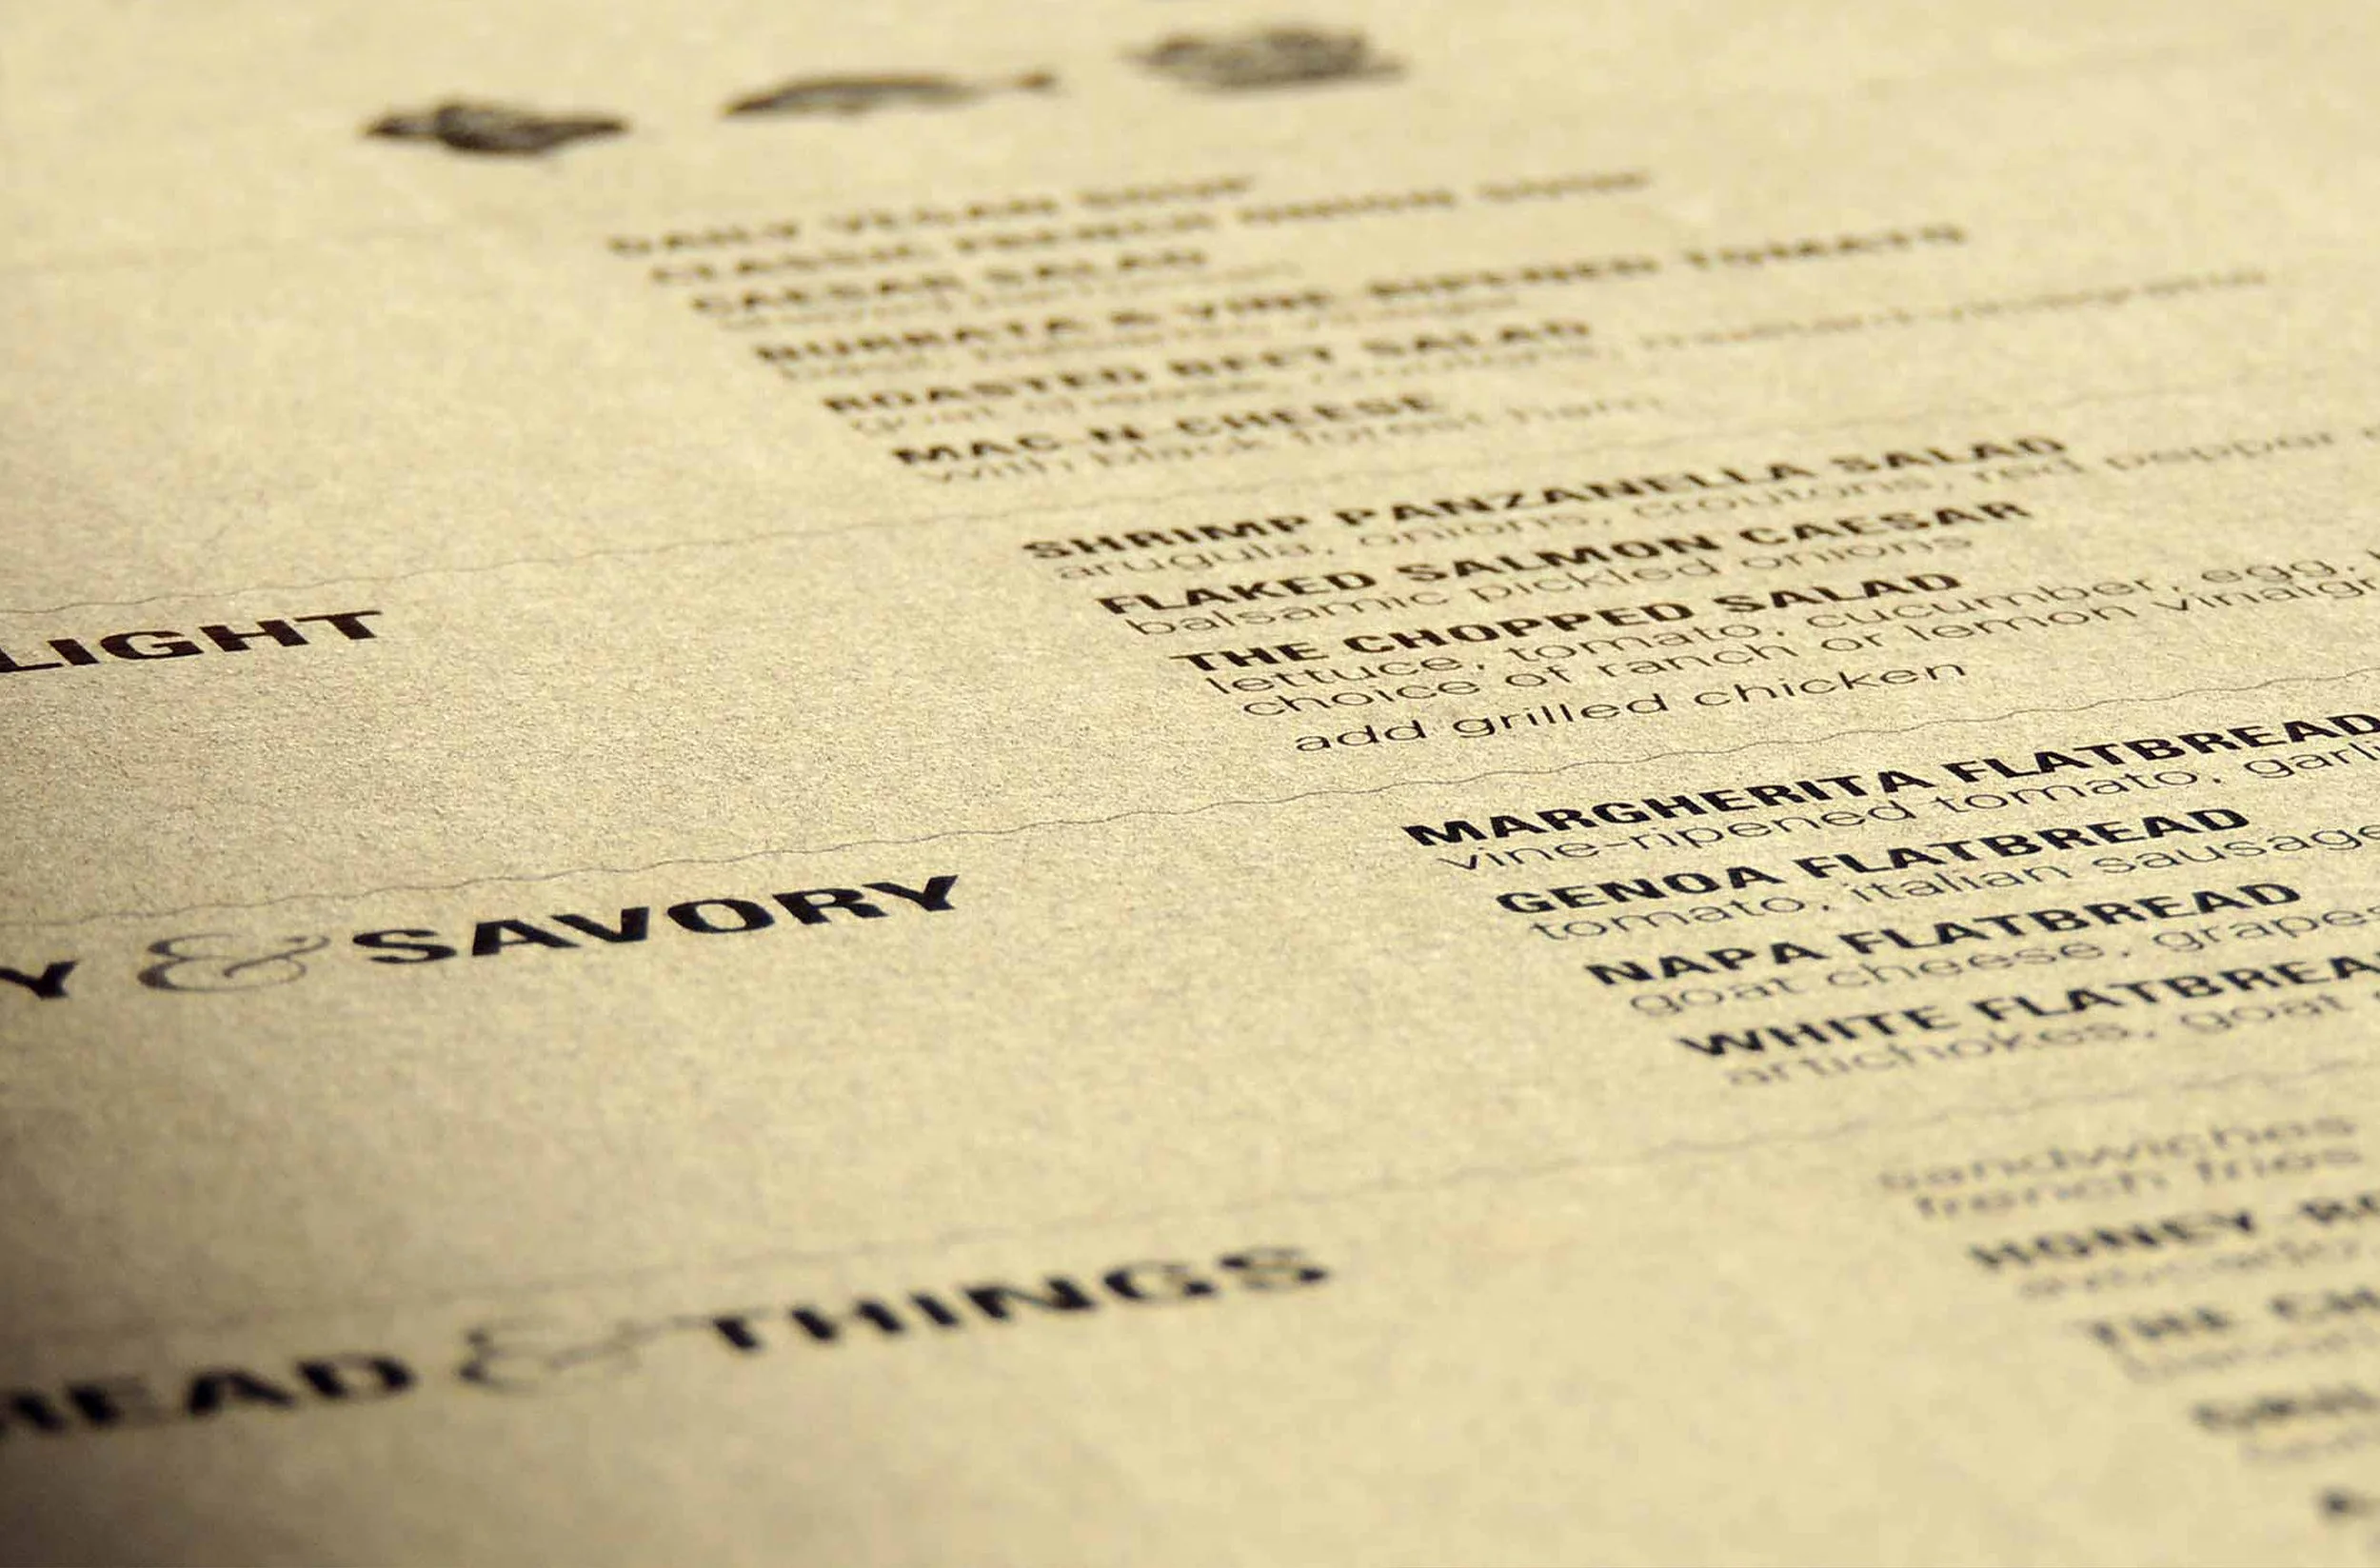 DAILY VEGAN SOUP
CLASSIC FRENCH ONION SOUP
CAESAR SALAD
BURRATA & VINE-RIPENED TOMATO
ROASTED BEET SALAD
goat cheese, croutons, mustard vinaigrette
MAC-N-CHEESE
with black forest ham
LIGHT
SHRIMP PANZANELLA SALAD
arugula, onions, croutons, red pepper
FLAKED SALMON CAESAR
balsamic pickled onions
THE CHOPPED SALAD
lettuce, tomato, cucumber, egg,
choice of ranch or lemon vinaigr
add grilled chicken
Y & SAVORY
MARGHERITA FLATBREAD
vine-ripened tomato, garl
GENOA FLATBREAD
tomato, italian sausage
NAPA FLATBREAD
goat cheese, grape
WHITE FLATBREA
artichokes, goat
EAD & THINGS
sandwiches
french fries
HONEY-RO
THE CH